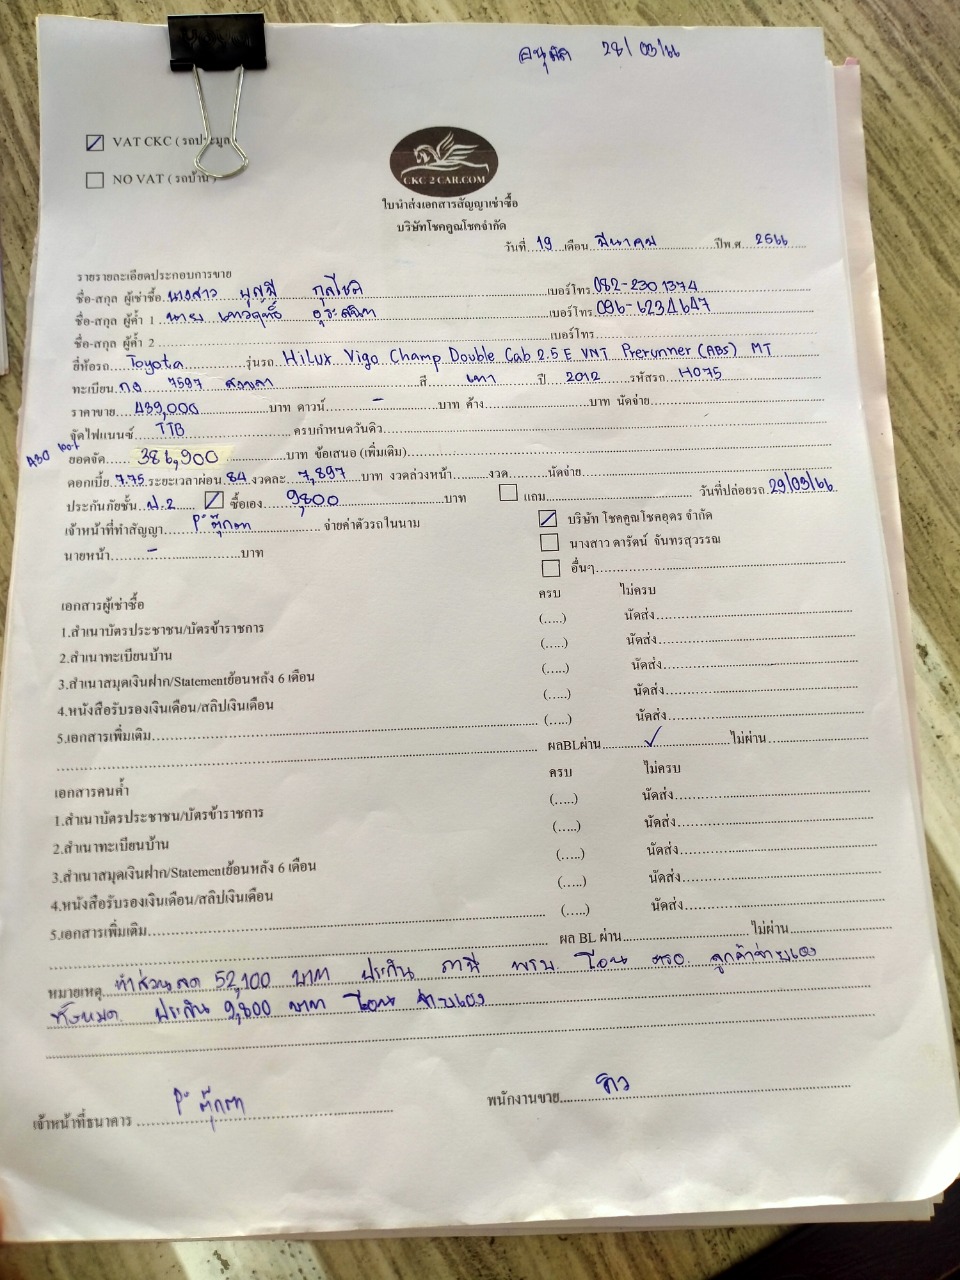 อนุมัติ 28/03/66
VAT CKC ( รถประมูล
NO VAT ( รถบ้าน )
CKC 2 CAR.COM
ใบนำส่งเอกสารสัญญาเช่าซื้อ
บริษัทโชคคูณโชคจำกัด
วันที่ 19 เดือน มีนาคม ปีพ.ศ. 2566
รายรายละเอียดประกอบการขาย
ชื่อ-สกุล ผู้เช่าซื้อ นางสาว บุญมี กุลโชติ เบอร์โทร 082-230 1374
ชื่อ-สกุล ผู้ค้ำ 1 นาย เบอร์โทร 096-6234647
ชื่อ-สกุล ผู้ค้ำ 2 เบอร์โทร
ยี่ห้อรถ Toyota รุ่นรถ Hilux Vigo Champ Double Cab 2.5 E VNT Prerunner (ABS) MT
ทะเบียน 7597 สงขลา สี เทา ปี 2012 รหัสรถ H075
ราคาขาย 439,000 บาท ดาวน์ - บาท ค้าง บาท นัดจ่าย
จัดไฟแนนซ์ TTB ครบกำหนดวันดิว
ยอดจัด 386,900 บาท ข้อเสนอ (เพิ่มเติม)
ดอกเบี้ย 7.75 ระยะเวลาผ่อน 84 งวดละ 7,897 บาท งวดล่วงหน้า งวด นัดจ่าย
ประกันภัยชั้น ป.2 ซื้อเอง 9,800 บาท แถม วันที่ปล่อยรถ 29/03/66
เจ้าหน้าที่ทำสัญญา P' ตุ๊กตา จ่ายค่าตัวรถในนาม บริษัท โชคคูณโชคอุดร จำกัด
นายหน้า - บาท นางสาว ดารัตน์ จันทรสุวรรณ
อื่นๆ
เอกสารผู้เช่าซื้อ ครบ ไม่ครบ
1.สำเนาบัตรประชาชน/บัตรข้าราชการ (.....) นัดส่ง
2.สำเนาทะเบียนบ้าน (.....) นัดส่ง
3.สำเนาสมุดเงินฝาก/Statementย้อนหลัง 6 เดือน (.....) นัดส่ง
4.หนังสือรับรองเงินเดือน/สลิปเงินเดือน (.....) นัดส่ง
5.เอกสารเพิ่มเติม (.....) นัดส่ง
ผลBLผ่าน ✓ ไม่ผ่าน
เอกสารคนค้ำ ครบ ไม่ครบ
1.สำเนาบัตรประชาชน/บัตรข้าราชการ (.....) นัดส่ง
2.สำเนาทะเบียนบ้าน (.....) นัดส่ง
3.สำเนาสมุดเงินฝาก/Statementย้อนหลัง 6 เดือน (.....) นัดส่ง
4.หนังสือรับรองเงินเดือน/สลิปเงินเดือน (.....) นัดส่ง
5.เอกสารเพิ่มเติม (.....) นัดส่ง
ผล BL ผ่าน ไม่ผ่าน
หมายเหตุ ทำส่วนลด 52,100 บาท ประกัน ภาษี พรบ. โอน ตรอ. ลูกค้าจ่ายเอง
ทั้งหมด ประกัน 9,800 บาท โอน จ่ายเอง
เจ้าหน้าที่ธนาคาร P' ตุ๊กตา พนักงานขาย